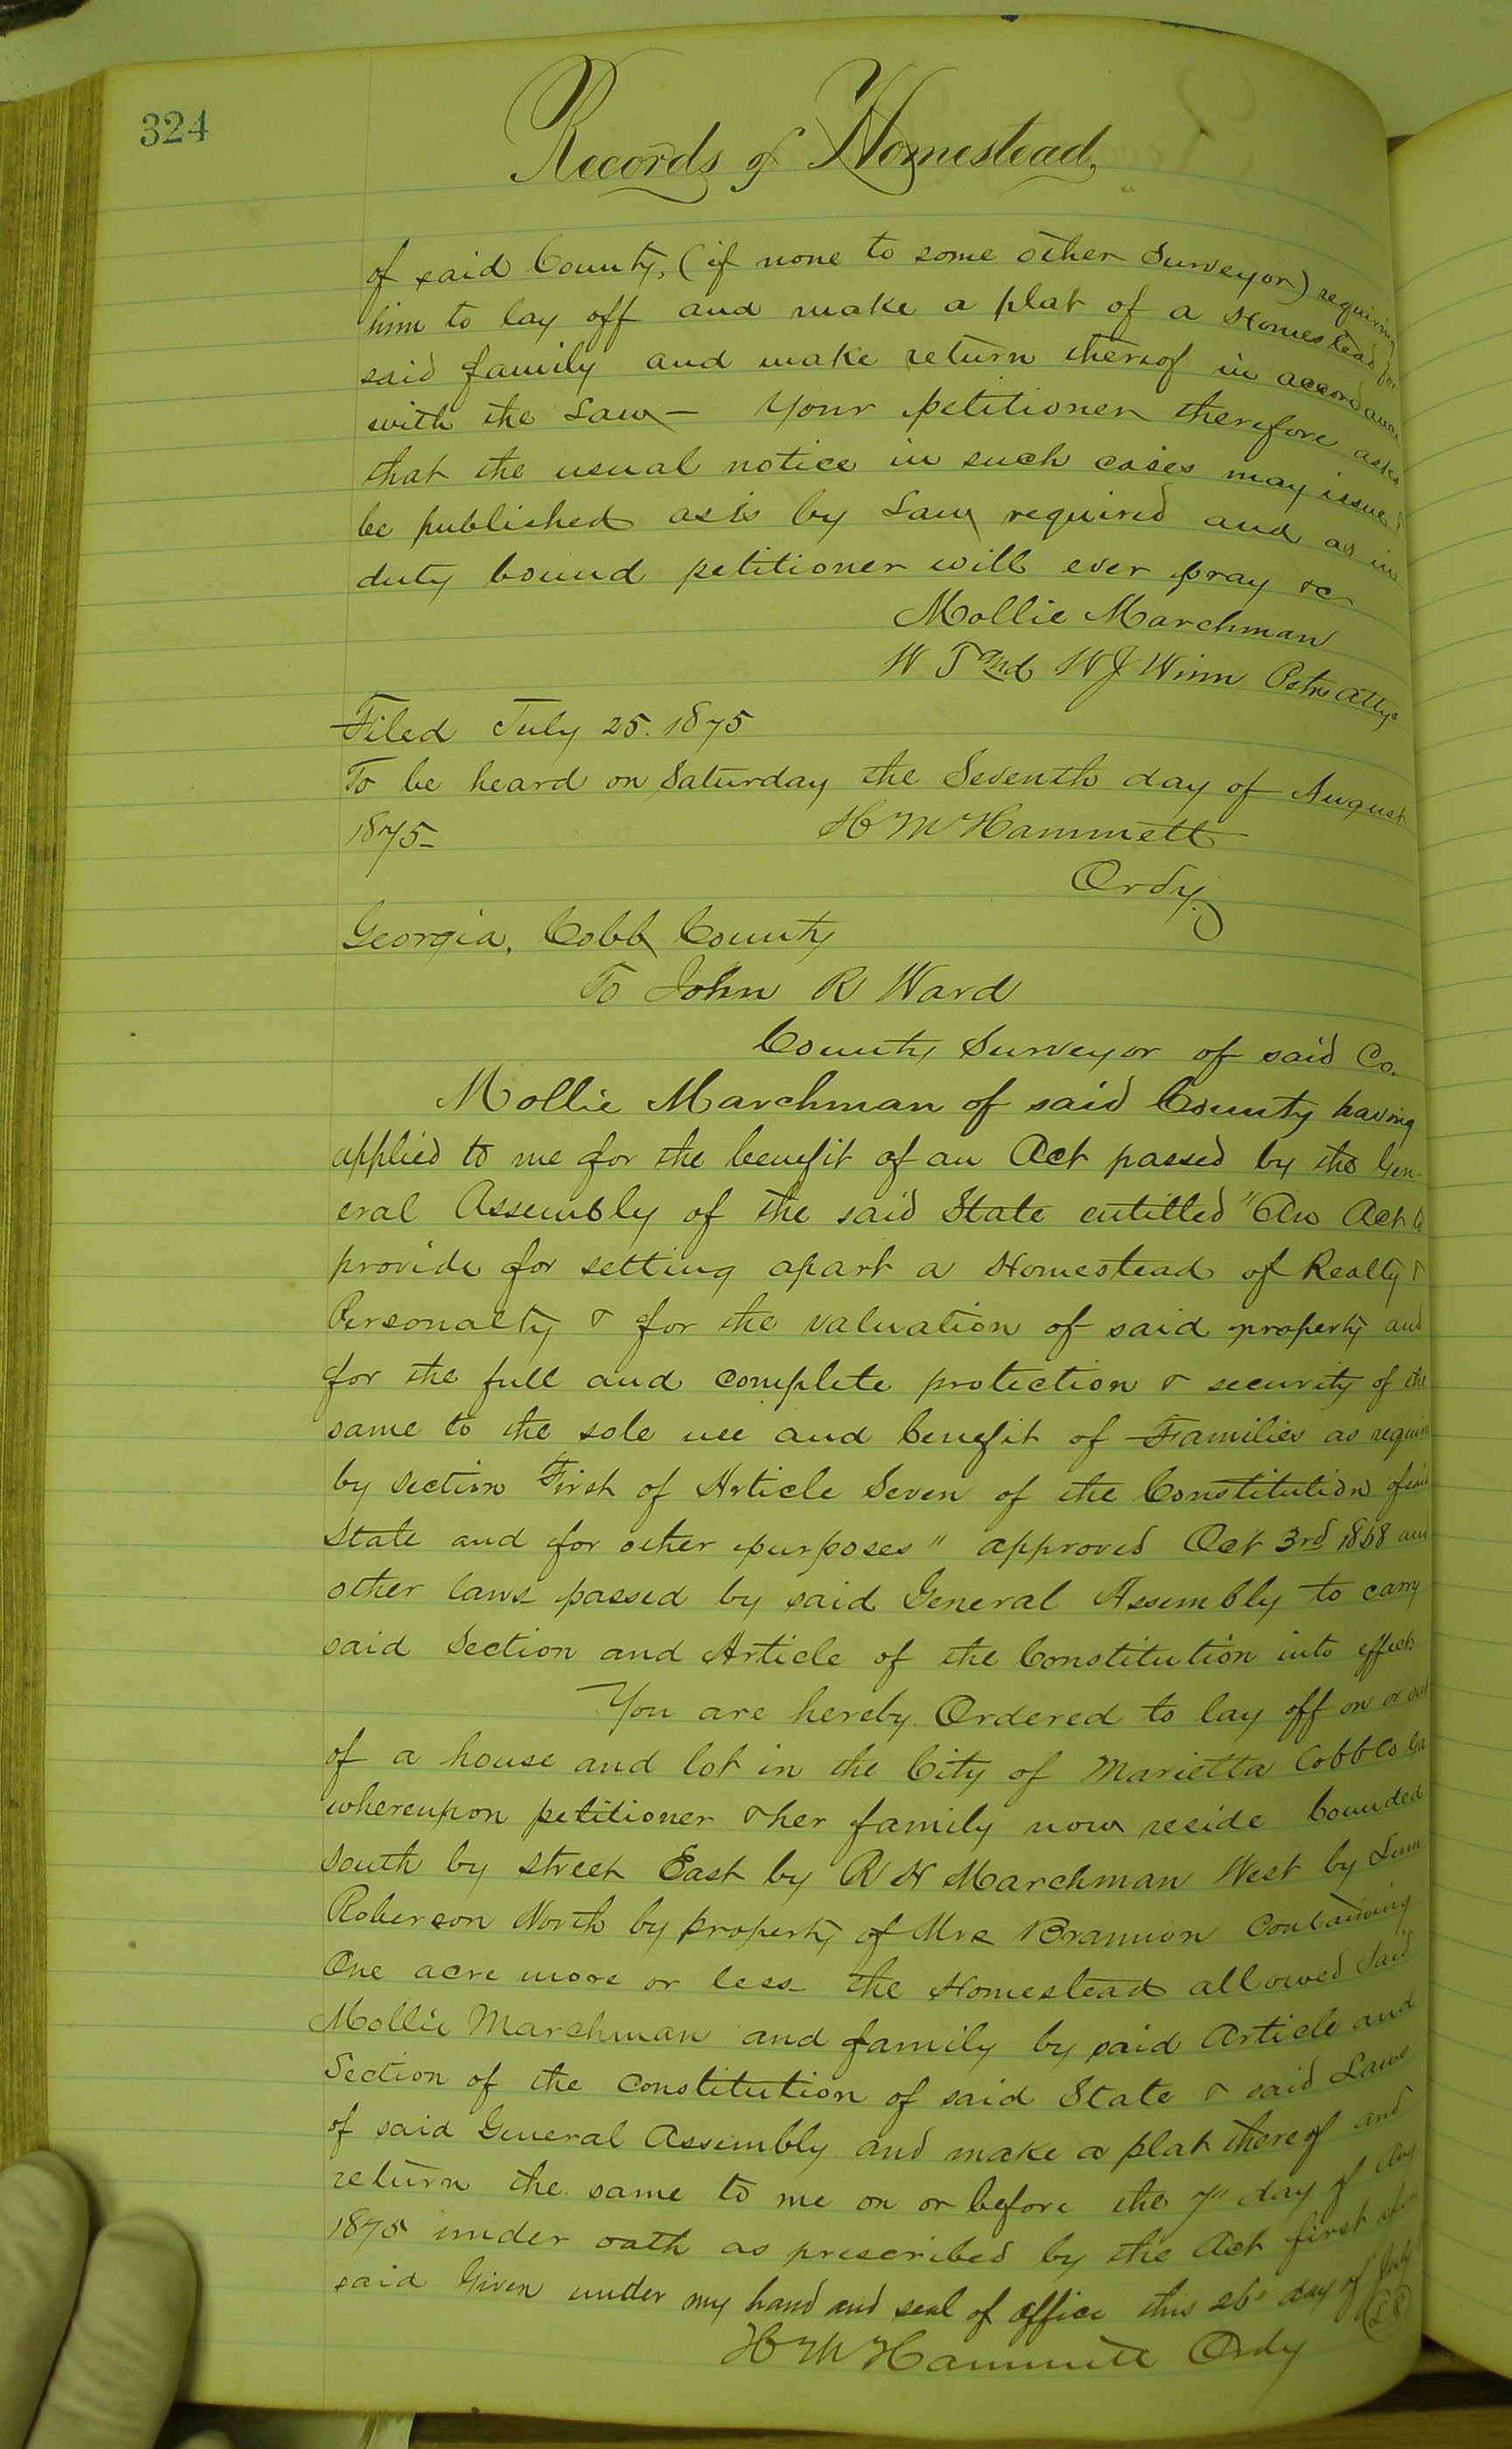 324
Records of Homestead,
of said County, (if none to some other Surveyor) requiring
him to lay off and make a plat of a Homestead for
said family and make return thereof in accordance
with the Law — Your petitioner therefore asks
that the usual notice in such cases may issue &
be published as is by Law required and as in
duty bound petitioner will ever pray &c
Mollie Marchman
W T and W J Winn Petrs Attys
Filed July 25. 1875
To be heard on Saturday the Seventh day of August
1875— H M Hammett
Ordy.
Georgia, Cobb County
To John R Ward
County Surveyor of said Co.
Mollie Marchman of said County having
applied to me for the benefit of an Act passed by the Gen-
eral Assembly of the said State entitled "An Act to
provide for setting apart a Homestead of Realty &
Personalty & for the valuation of said property and
for the full and complete protection & security of the
same to the sole use and benefit of Families as require
by Section First of Article Seven of the Constitution of said
State and for other purposes" approved Oct 3rd 1868 and
other laws passed by said General Assembly to carry
said Section and Article of the Constitution into effect
You are hereby Ordered to lay off on or out
of a house and lot in the City of Marietta Cobb Co Ga
whereupon petitioner & her family now reside bounded
South by street East by R N Marchman West by Lum
Roberson North by property of Mrs Brannon Containing
One acre more or less the Homestead allowed said
Mollie Marchman and family by said Article and
Section of the Constitution of said State & said Laws
of said General Assembly and make a plat thereof and
return the same to me on or before the 7" day of Aug
1875 under oath as prescribed by the Act first
said Given under my hand and seal of office this 26" day of July
H M Hammett Ordy